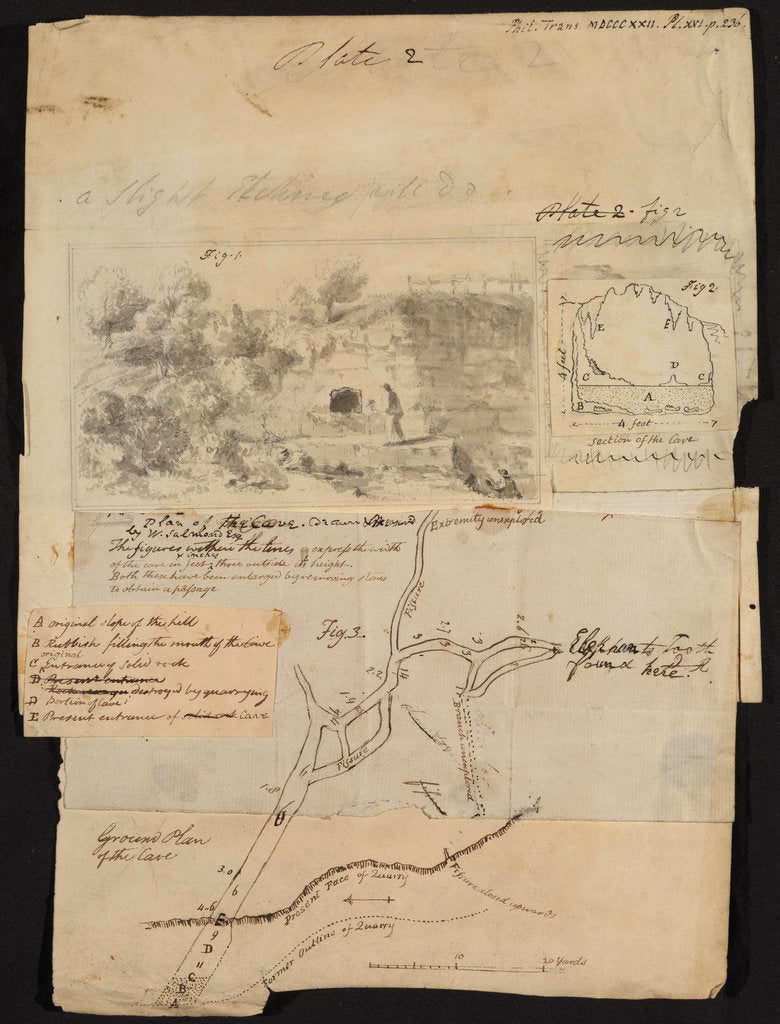 Phil. Trans. MDCCCXXII. Pl. XVI. p. 236.
Plate 2
a slight
Plate 2. fig 2
Fig. 1.
Fig 2.
E E
4 feet
C D C
A
B
4 feet
section of the Cave
Plan of the Cave. Drawn
by W. Salmond Esq.
The figures within the lines express the width
of the cave in feet & inches those outside its height.
Both these have been enlarged by removing stones
to obtain a passage
Extremity unexplored
Fissure
Fig. 3.
Elephants Tooth
found here.
A original slope of the hill
B Rubbish filling the mouth of the Cave
C original Entrance of solid rock
D Present entrance
destroyed by quarrying
D Portion of Cave
E Present entrance of Cave
Branch unexplored
Fissure
Ground Plan
of the Cave
3.0
6
4-6
E
9
Present Face of Quarry
A Fissure closed upwards
Former Outline of Quarry
D
11
C
B
A
10
20 Yards